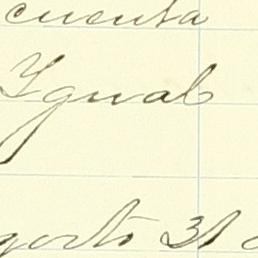 cuenta
Ygual
gosto 31